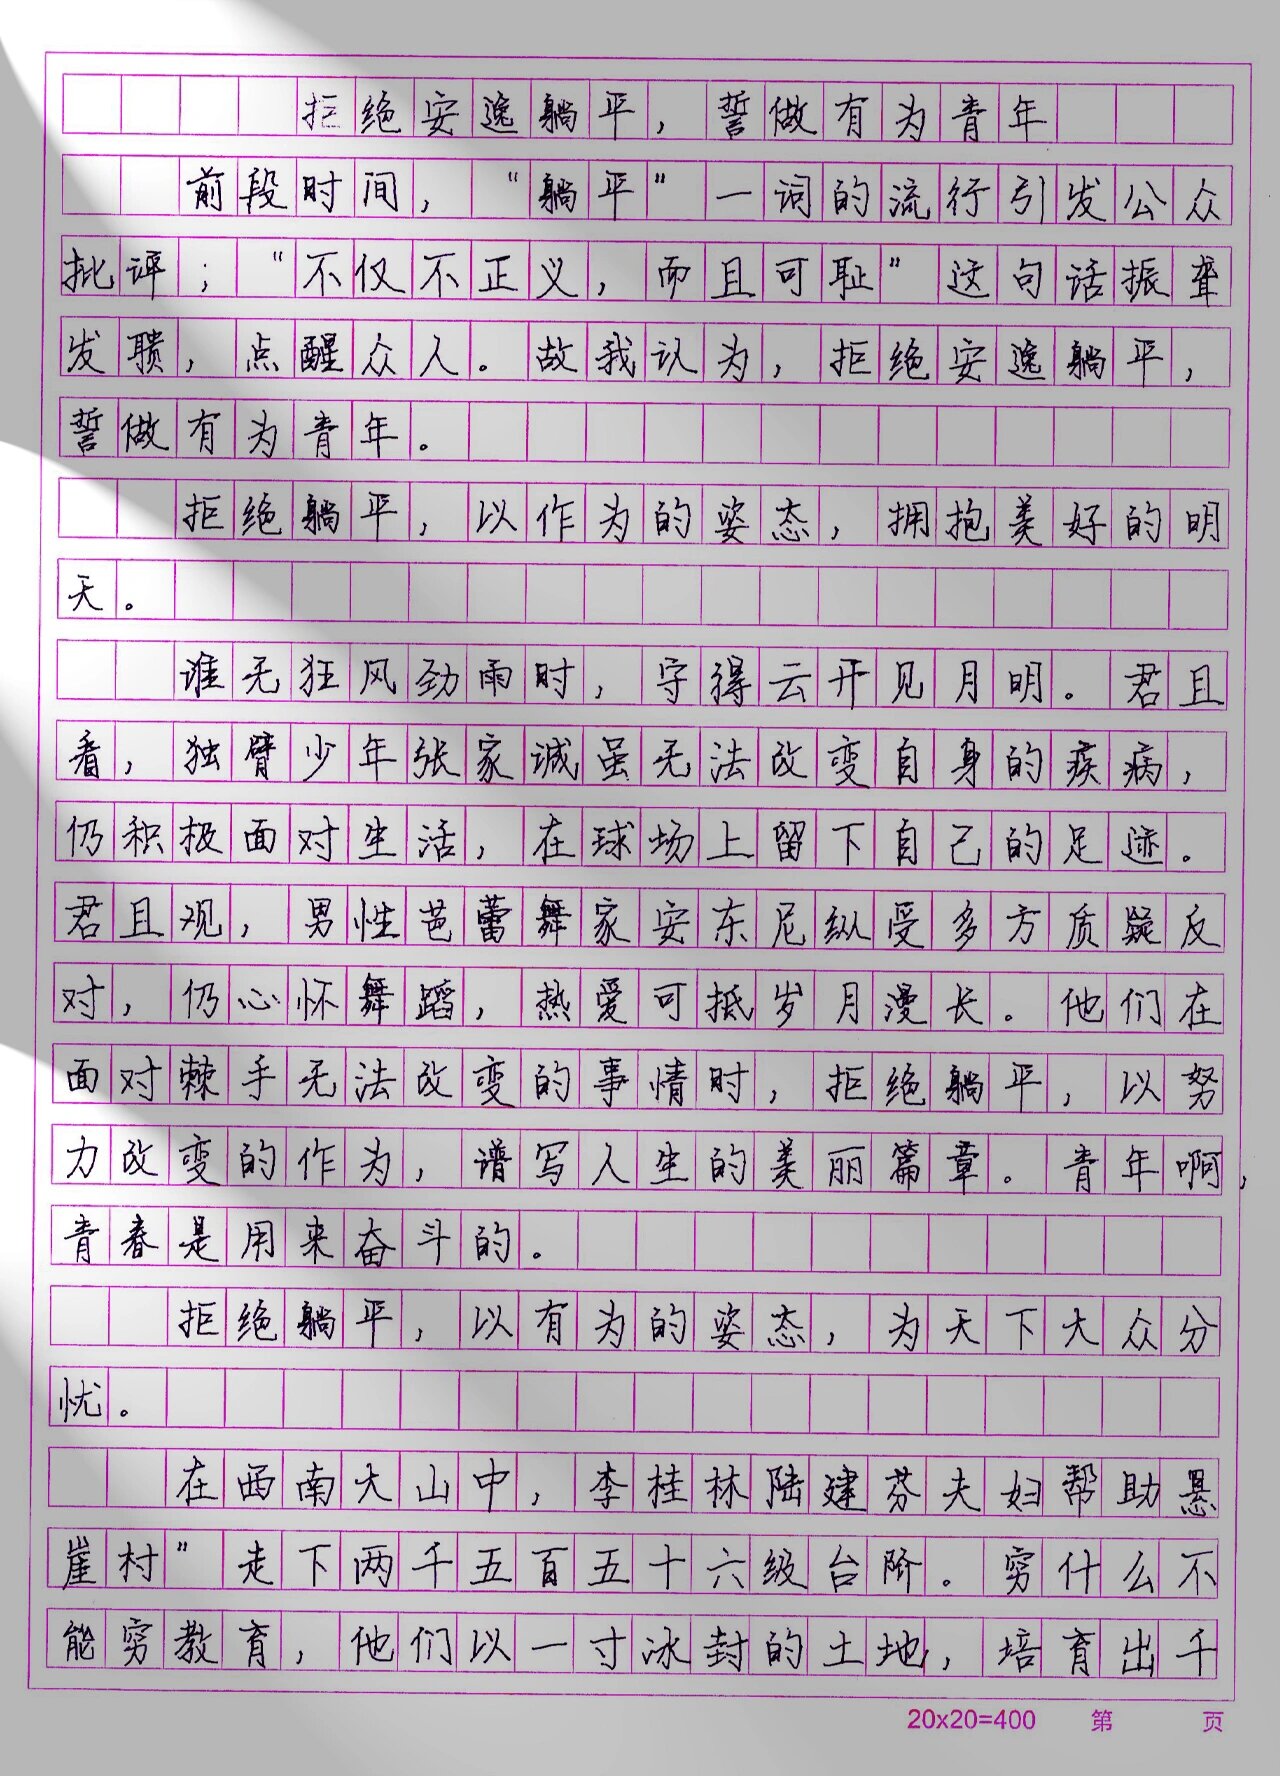 拒绝安逸躺平，誓做有为青年
前段时间，“躺平”一词的流行引发公众
批评；“不仅不正义，而且可耻”这句话振聋
发聩，点醒众人。故我认为，拒绝安逸躺平，
誓做有为青年。
拒绝躺平，以作为的姿态，拥抱美好的明
天。
谁无狂风劲雨时，守得云开见月明。君且
看，独臂少年张家诚虽无法改变自身的疾病，
仍积极面对生活，在球场上留下自己的足迹。
君且观，男性芭蕾舞家安东尼纵受多方质疑反
对，仍心怀舞蹈，热爱可抵岁月漫长。他们在
面对棘手无法改变的事情时，拒绝躺平，以努
力改变的作为，谱写人生的美丽篇章。青年啊，
青春是用来奋斗的。
拒绝躺平，以有为的姿态，为天下大众分
忧。
在西南大山中，李桂林陆建芬夫妇帮助悬
崖村”走下两千五百五十六级台阶。穷什么不
能穷教育，他们以一寸冰封的土地，培育出千
20x20=400 第 页